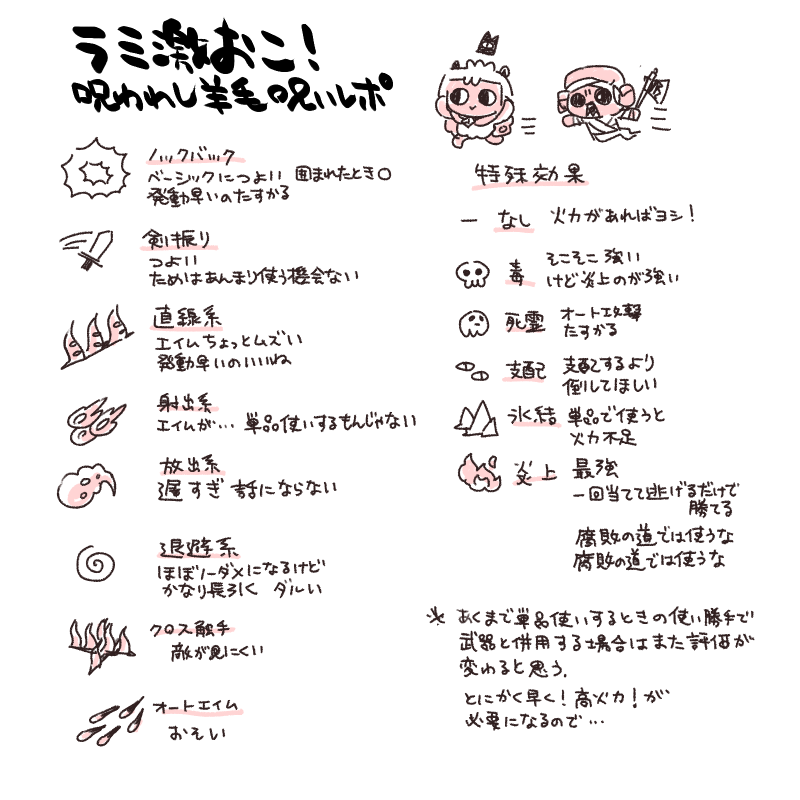 ラミ激おこ！
呪われし羊毛呪いレポ
ノックバック
ベーシックにつよい 囲まれたとき○
発動早いのたすかる
剣振り
つよい
ためはあんまり使う機会ない
直線系
エイムちょっとムズい
発動早いのいいね
射出系
エイムが… 単品使いするもんじゃない
放出系
遅すぎ 話にならない
退避系
ほぼノーダメになるけど
かなり長引く ダルい
クロス触手
敵が見にくい
オートエイム
おそい
特殊効果
ー なし 火力があればヨシ！
毒 そこそこ強い
けど炎上のが強い
死霊 オート攻撃
たすかる
支配 支配するより
倒してほしい
氷結 単品で使うと
火力不足
炎上 最強
一回当てて逃げるだけで
勝てる
腐敗の道では使うな
腐敗の道では使うな
※ あくまで単品使いするときの使い勝手で
武器と併用する場合はまた評価が
変わると思う.
とにかく早く！高火力！が
必要になるので…